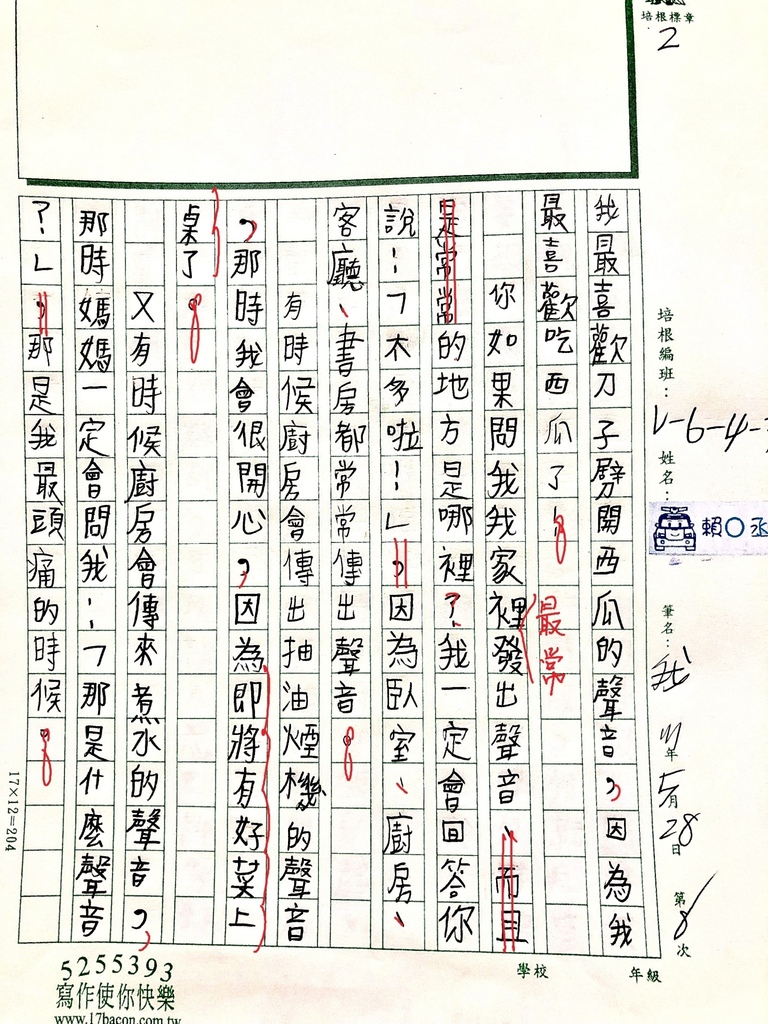 培根標章
2
培根編班：V-6-4-
姓名：賴○丞
筆名：我
111年5月28日
第8次
年級
學校
我最喜歡刀子劈開西瓜的聲音，因為我
最喜歡吃西瓜了。
你如果問我我家裡發出聲音、而且
最常
是常常的地方是哪裡？我一定會回答你
說：「太多啦！」，因為臥室、廚房、
客廳、書房都常常傳出聲音。
有時候廚房會傳出抽油煙機的聲音
，那時我會很開心，因為即將有好菜上
桌了。
又有時候廚房會傳來煮水的聲音，
那時媽媽一定會問我：「那是什麼聲音
？」，那是我最頭痛的時候。
17×12=204
5255393
寫作使你快樂
www.17bacon.com.tw